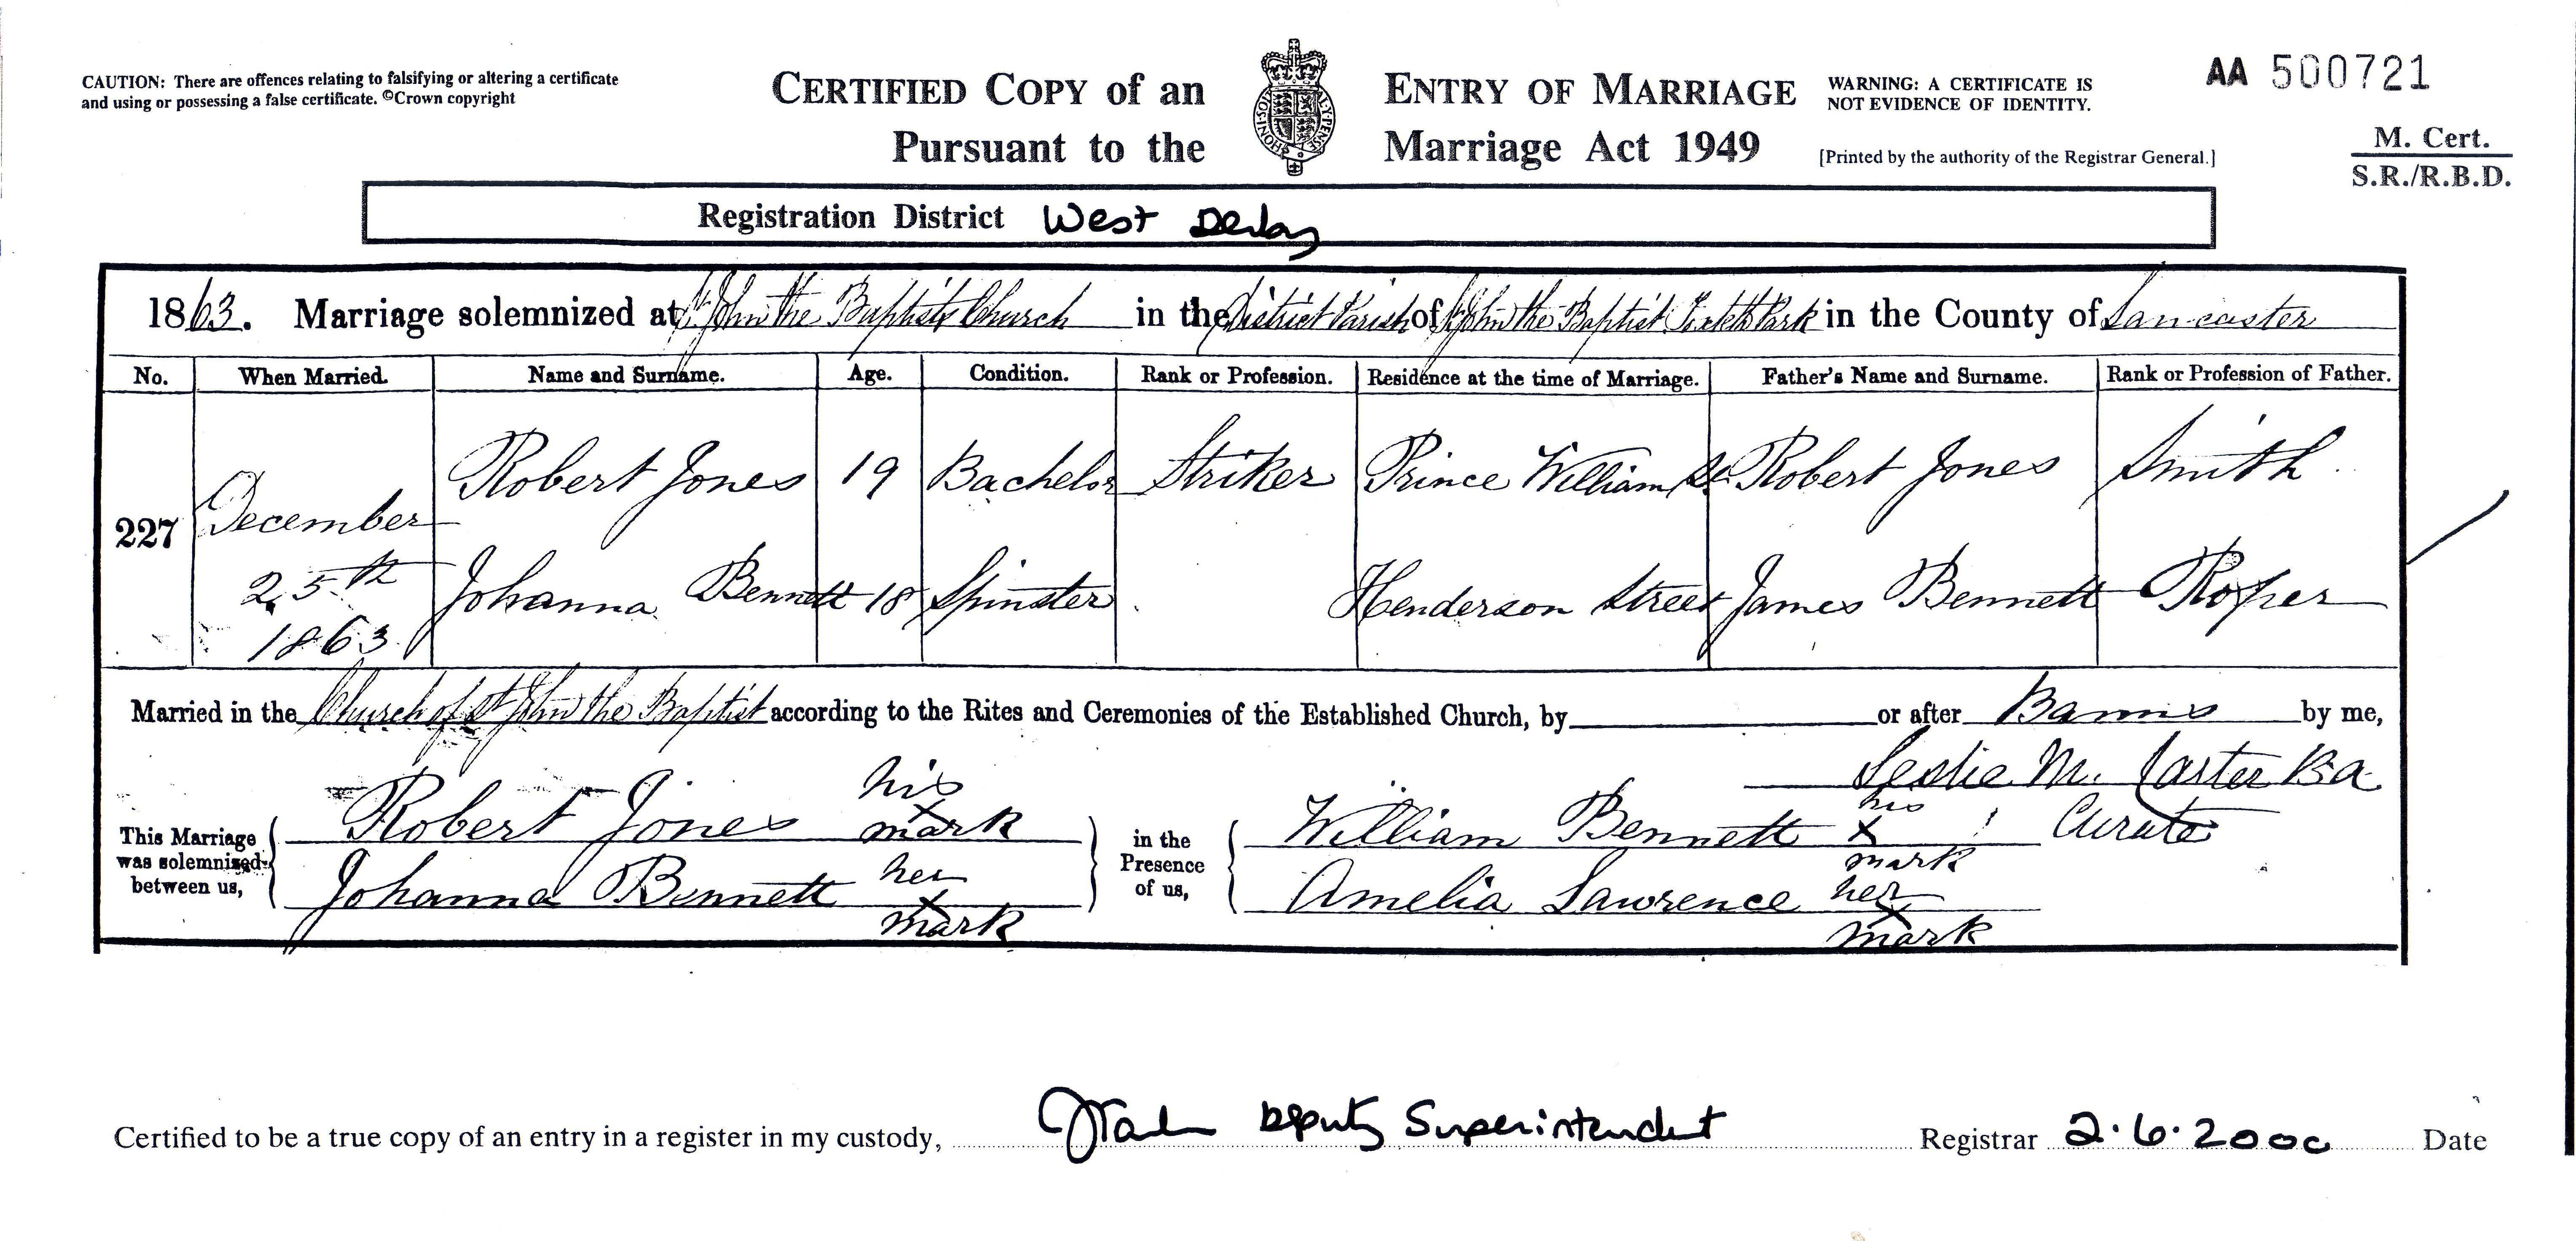 CAUTION: There are offences relating to falsifying or altering a certificate
and using or possessing a false certificate. ©Crown copyright
CERTIFIED COPY of an ENTRY OF MARRIAGE
Pursuant to the Marriage Act 1949
HONI SOIT QUI MAL Y PENSE
WARNING: A CERTIFICATE IS
NOT EVIDENCE OF IDENTITY.
[Printed by the authority of the Registrar General.]
AA 500721
M. Cert.
S.R./R.B.D.
Registration District West Derby
1863. Marriage solemnized at St John the Baptists Church in the District Parish of St John the Baptist Toxteth Park in the County of Lancaster
No. When Married. Name and Surname. Age. Condition. Rank or Profession. Residence at the time of Marriage. Father's Name and Surname. Rank or Profession of Father.
227 December 25th 1863
Robert Jones 19 Bachelor Striker Prince William St. Robert Jones Smith
Johanna Bennett 18 Spinster Henderson Street James Bennett Roper
Married in the Church of St John the Baptist according to the Rites and Ceremonies of the Established Church, by or after Banns by me,
Leslie M. Carter Ba
Curate
This Marriage was solemnized between us,
Robert Jones his x mark
Johanna Bennett her x mark
in the Presence of us,
William Bennett his x mark
Amelia Lawrence her x mark
Certified to be a true copy of an entry in a register in my custody, Deputy Superintendent Registrar 2.6.2000 Date